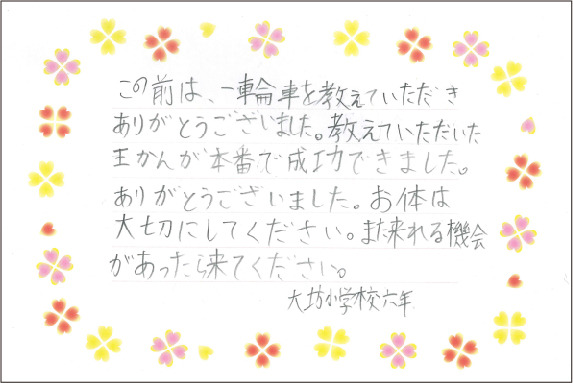 この前は、一輪車を教えていただき
ありがとうございました。教えていただいた
王かんが本番で成功できました。
ありがとうございました。お体は
大切にしてください。また来れる機会
があったら来てください。
大坊小学校六年